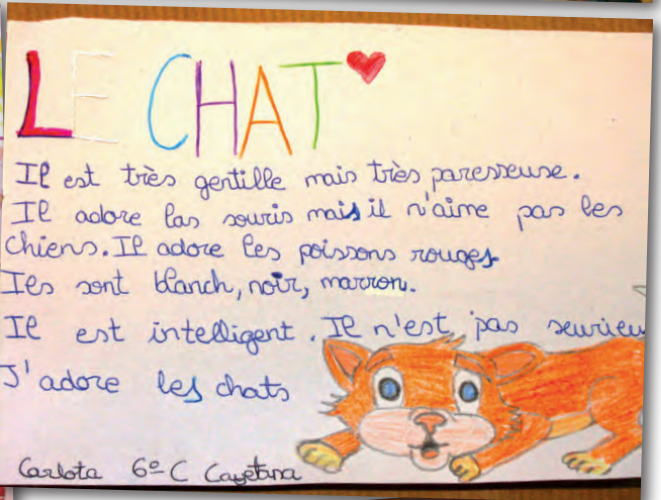 LE CHAT
Il est très gentille mais très paresseuse.
Il adore las souris mais il n'aime pas les
chiens. Il adore les poissons rouges.
Iles sont blanch, noir, marron.
Il est intelligent. Il n'est pas seurieu
J'adore les chats
Carlota 6º C Cayetana